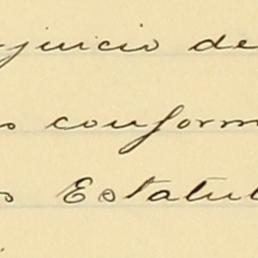 juicio de
conform
Estatu